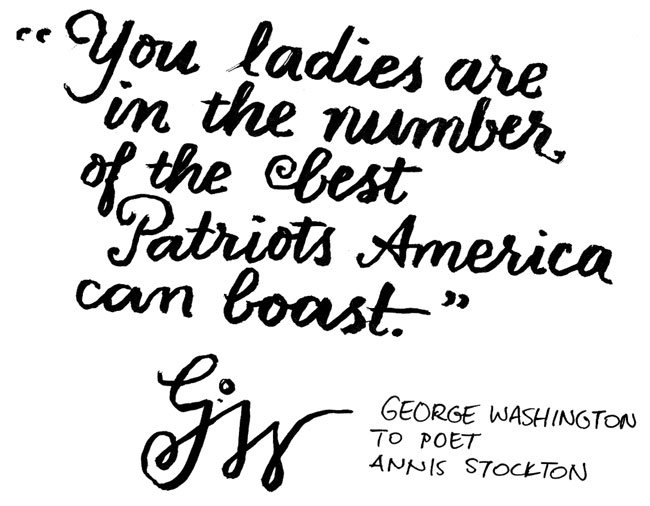 “You ladies are
in the number
of the best
Patriots America
can boast.”
G.W
GEORGE WASHINGTON
TO POET
ANNIS STOCKTON